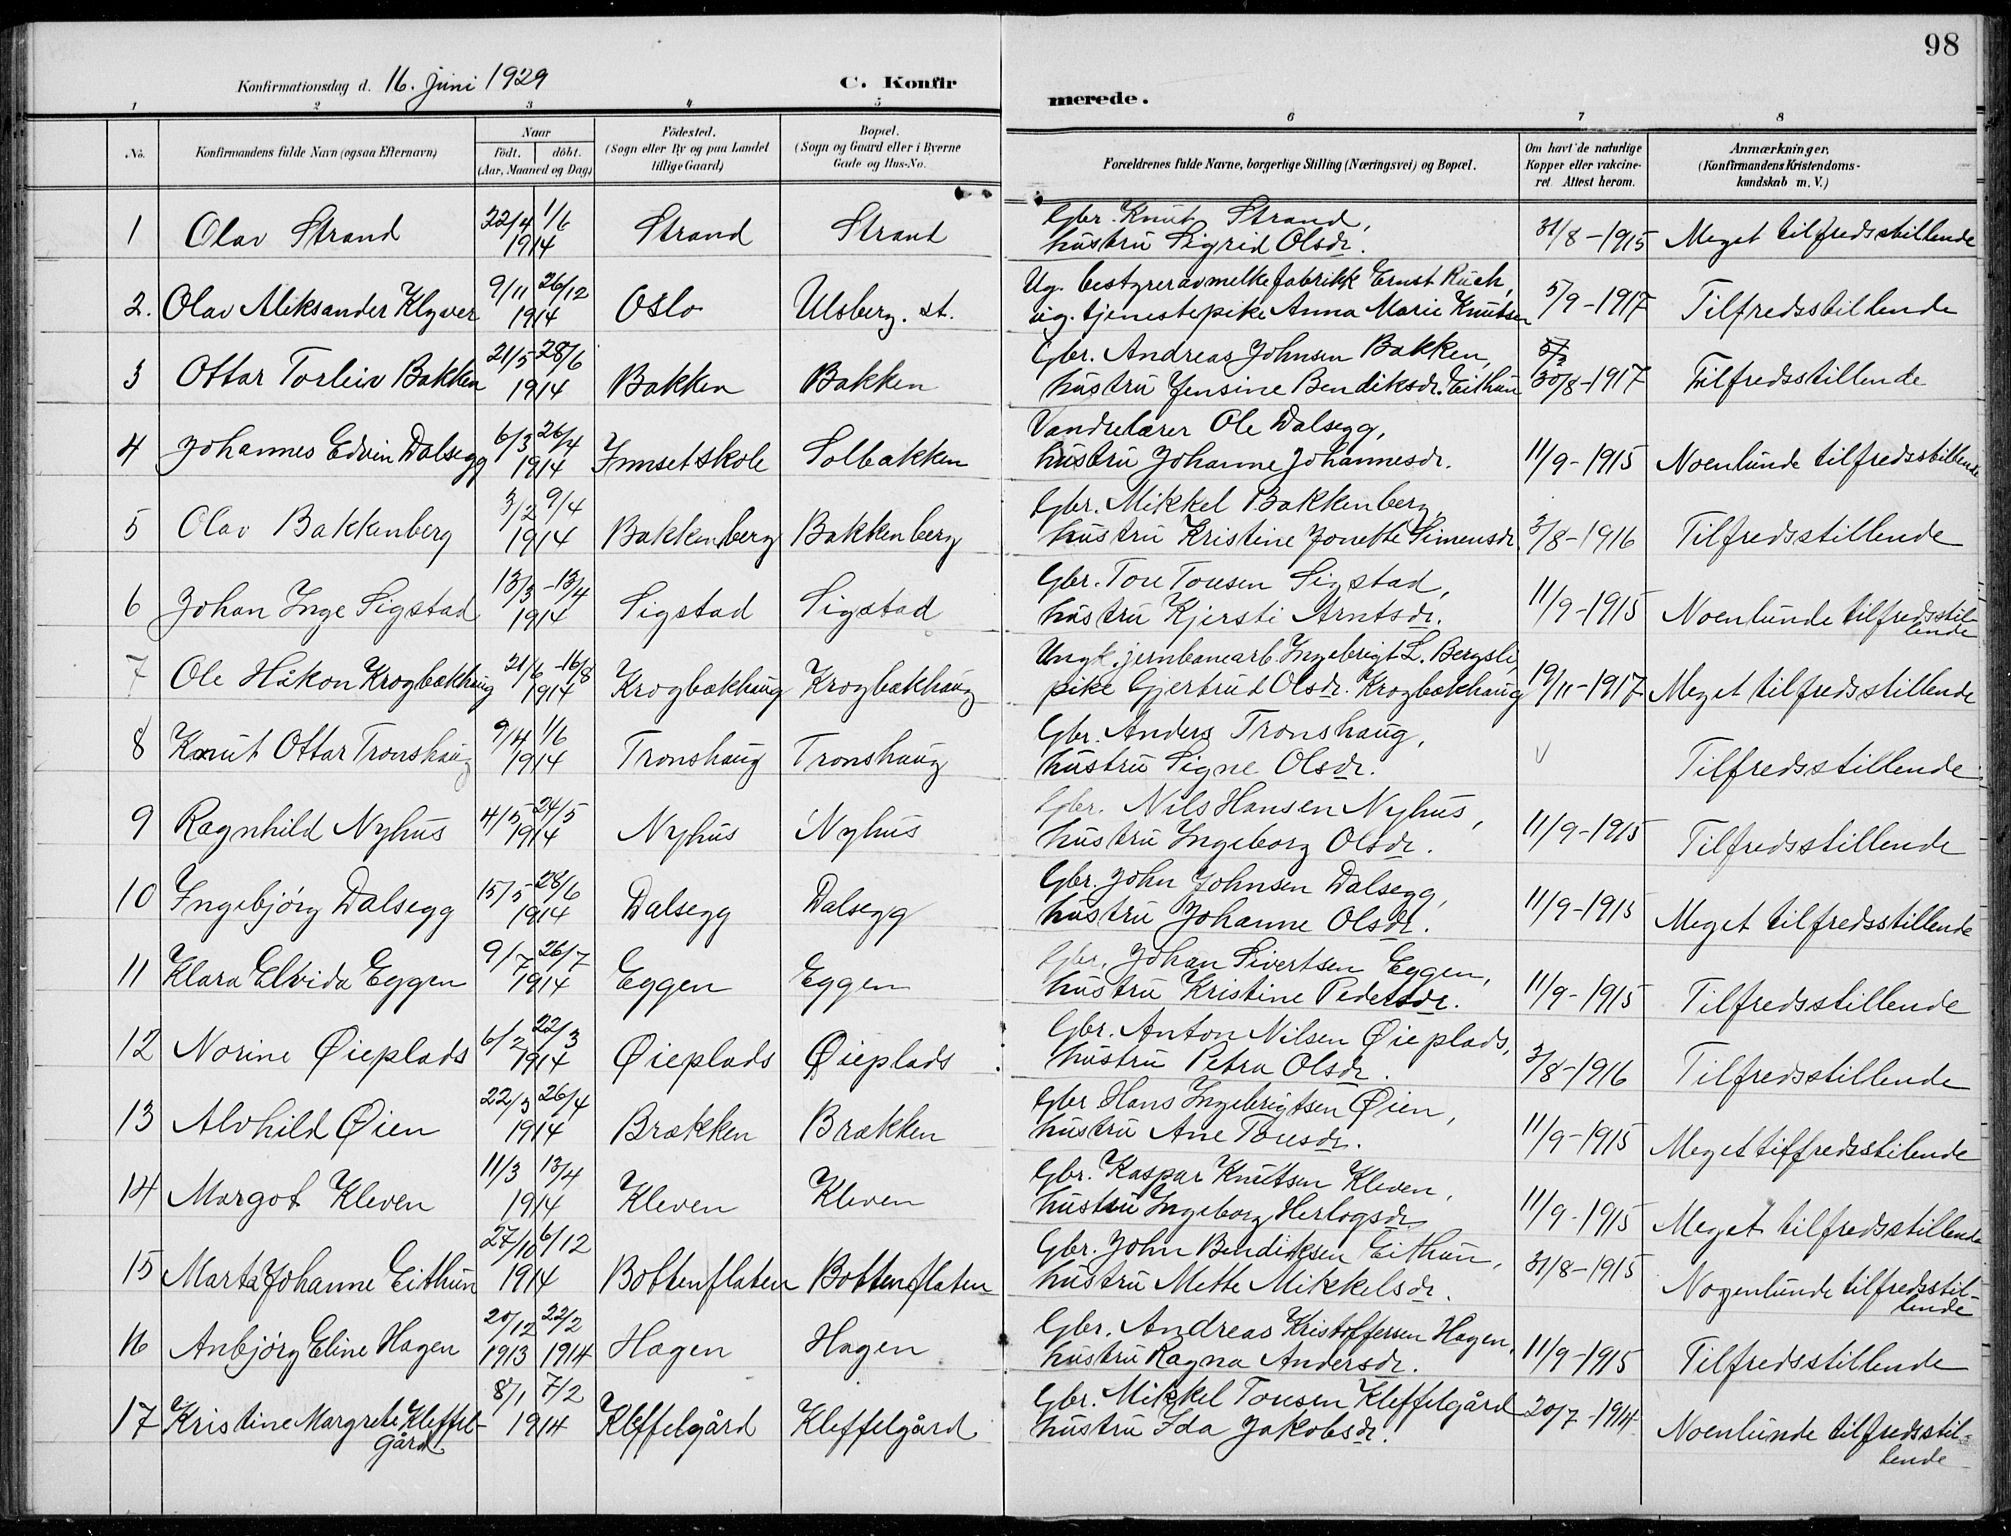 98
Konfirmationsdag d. 16. juni 1929 C. Konfir merede.
1 2 3 4 5 6 7 8
No. Konfirmandens fulde Navn (ogsaa Efternavn) Naar født. døbt. (Aar, Maaned og Dag) Fødested. (Sogn eller By og paa Landet tillige Gaard) Bopæl. (Sogn og Gaard eller i Byerne Gade og Hus-No. Forældrenes fulde Navne, borgerlige Stilling (Næringsvei) og Bopæl. Om havt de naturlige Kopper eller vakcineret. Attest herom. Anmærkninger. (Konfirmandens Kristendomskundskab m. V.)
1 Olav Strand 22/4 1/6 1914 Strand Strand Gbr. Knut Strand, hustru Sigrid Olsdr. 31/8-1915 Meget tilfredsstillende
2. Olav Aleksander Klyver 9/11 26/12 1914 Oslo Ulsberg. st. Ug. bestyrer av melkefabrikk Ernst Ruch, ug. tjenestepike Anna Marie Knutsen 5/9-1917 Tilfredsstillende
3 Ottar Torleiv Bakken 21/5 28/6 1914 Bakken Bakken Gbr. Andreas Johnsen Bakken, hustru Jensine Bendiksdr. Eithun 30/8-1917 Tilfredsstillende
4 Johannes Edvin Dalsegg 6/3 26/4 1914 Innset skole Solbakken Vandrelærer Ole Dalsegg, hustru Johanne Johannesdr. 11/9-1915 Noenlunde tilfredsstillende
5 Olav Bakkenberg 3/2 9/4 1914 Bakkenberg Bakkenberg Gbr. Mikkel Bakkenberg, hustru Kristine Jonette Simensdr. 3/8-1916 Tilfredsstillende
6 Johan Inge Sigstad 13/3-13/4 1914 Sigstad Sigstad Gbr. Tore Toresen Sigstad, hustru Kjersti Arntsdr. 11/9-1915 Noenlunde tilfredsstillende
7 Ole Håkon Krogbækhaug 21/6-16/8 1914 Krogbækhaug Krogbækhaug Ungk. jernbanearb. Ingebrigt L. Bergsli pike Gjertrud Olsdr. Krogbækhaug 19/11-1917 Meget tilfredsstillende
8 Knut Ottar Tronshaug 9/4 1/6 1914 Tronshaug Tronshaug Gbr. Anders Tronshaug, hustru Signe Olsdr. Tilfredsstillende
9 Ragnhild Nyhus 4/5 24/5 1914 Nyhus Nyhus Gbr. Nils Hansen Nyhus, hustru Ingeborg Olsdr. 11/9-1915 Tilfredsstillende
10 Ingebjørg Dalsegg 15/5 28/6 1914 Dalsegg Dalsegg Gbr. John Johnsen Dalsegg, hustru Johanne Olsdr. 11/9-1915 Meget tilfredsstillende
11 Klara Elvida Eggen 9/7 26/7 1914 Eggen Eggen Gbr. Johan Sivertsen Eggen, hustru Kristine Pedersdr. 11/9-1915 Tilfredsstillende
12 Norine Øieplads 6/2 22/3 1914 Øieplads Øieplads Gbr. Anton Nilsen Øieplads, hustru Petra Olsdr. 3/8-1916 Tilfredsstillende
13 Alvhild Øien 22/3 26/4 1914 Brækken Brækken Gbr Hans Ingebrigtsen Øien, hustru Ane Toresdr. 11/9-1915 Meget tilfredsstilende
14 Margot Kleven 11/3 13/4 1914 Kleven Kleven Gbr. Kaspar Knutsen Kleven, hustru Ingeborg Herlogsdr 11/9-1915 Meget tilfredsstillende
15 Marta Johanne Eithun 27/10 6/12 1914 Bottenflaten Bottenflaten Gbr. John Bendiksen Eithun, hustru Mette Mikkelsdr. 31/8-1915 Nogenlunde tilfredsstillende
16 Anbjørg Eline Hagen 20/12 1913 22/2 1914 Hagen Hagen Gbr. Andreas Kristoffersen Hagen, hustru Ragna Andersdr. 11/9-1915 Tilfredsstillende
17 Kristine Margrete Kleffelgård 8/1 7/2 1914 Kleffelgård Kleffelgård Gbr. Mikkel Toresen Kleffelgård hustru Ida Jakobsdr. 20/7-1914 Noenlunde tilfredsstillende